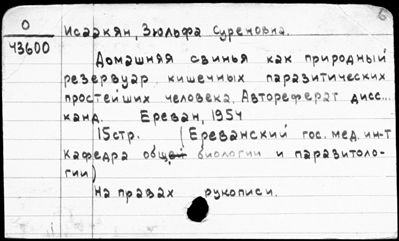 б
О
43600
Исаакян, Зюльфа Суреновна.
Домашняя свинья как природный
резервуар кишечных паразитических
простейших человека. Автореферат дисс...
канд. Ереван, 1954
15стр. (Ереванский гос. мед. ин-т
кафедра общей биологии и паразитоло-
гии)
На правах рукописи.